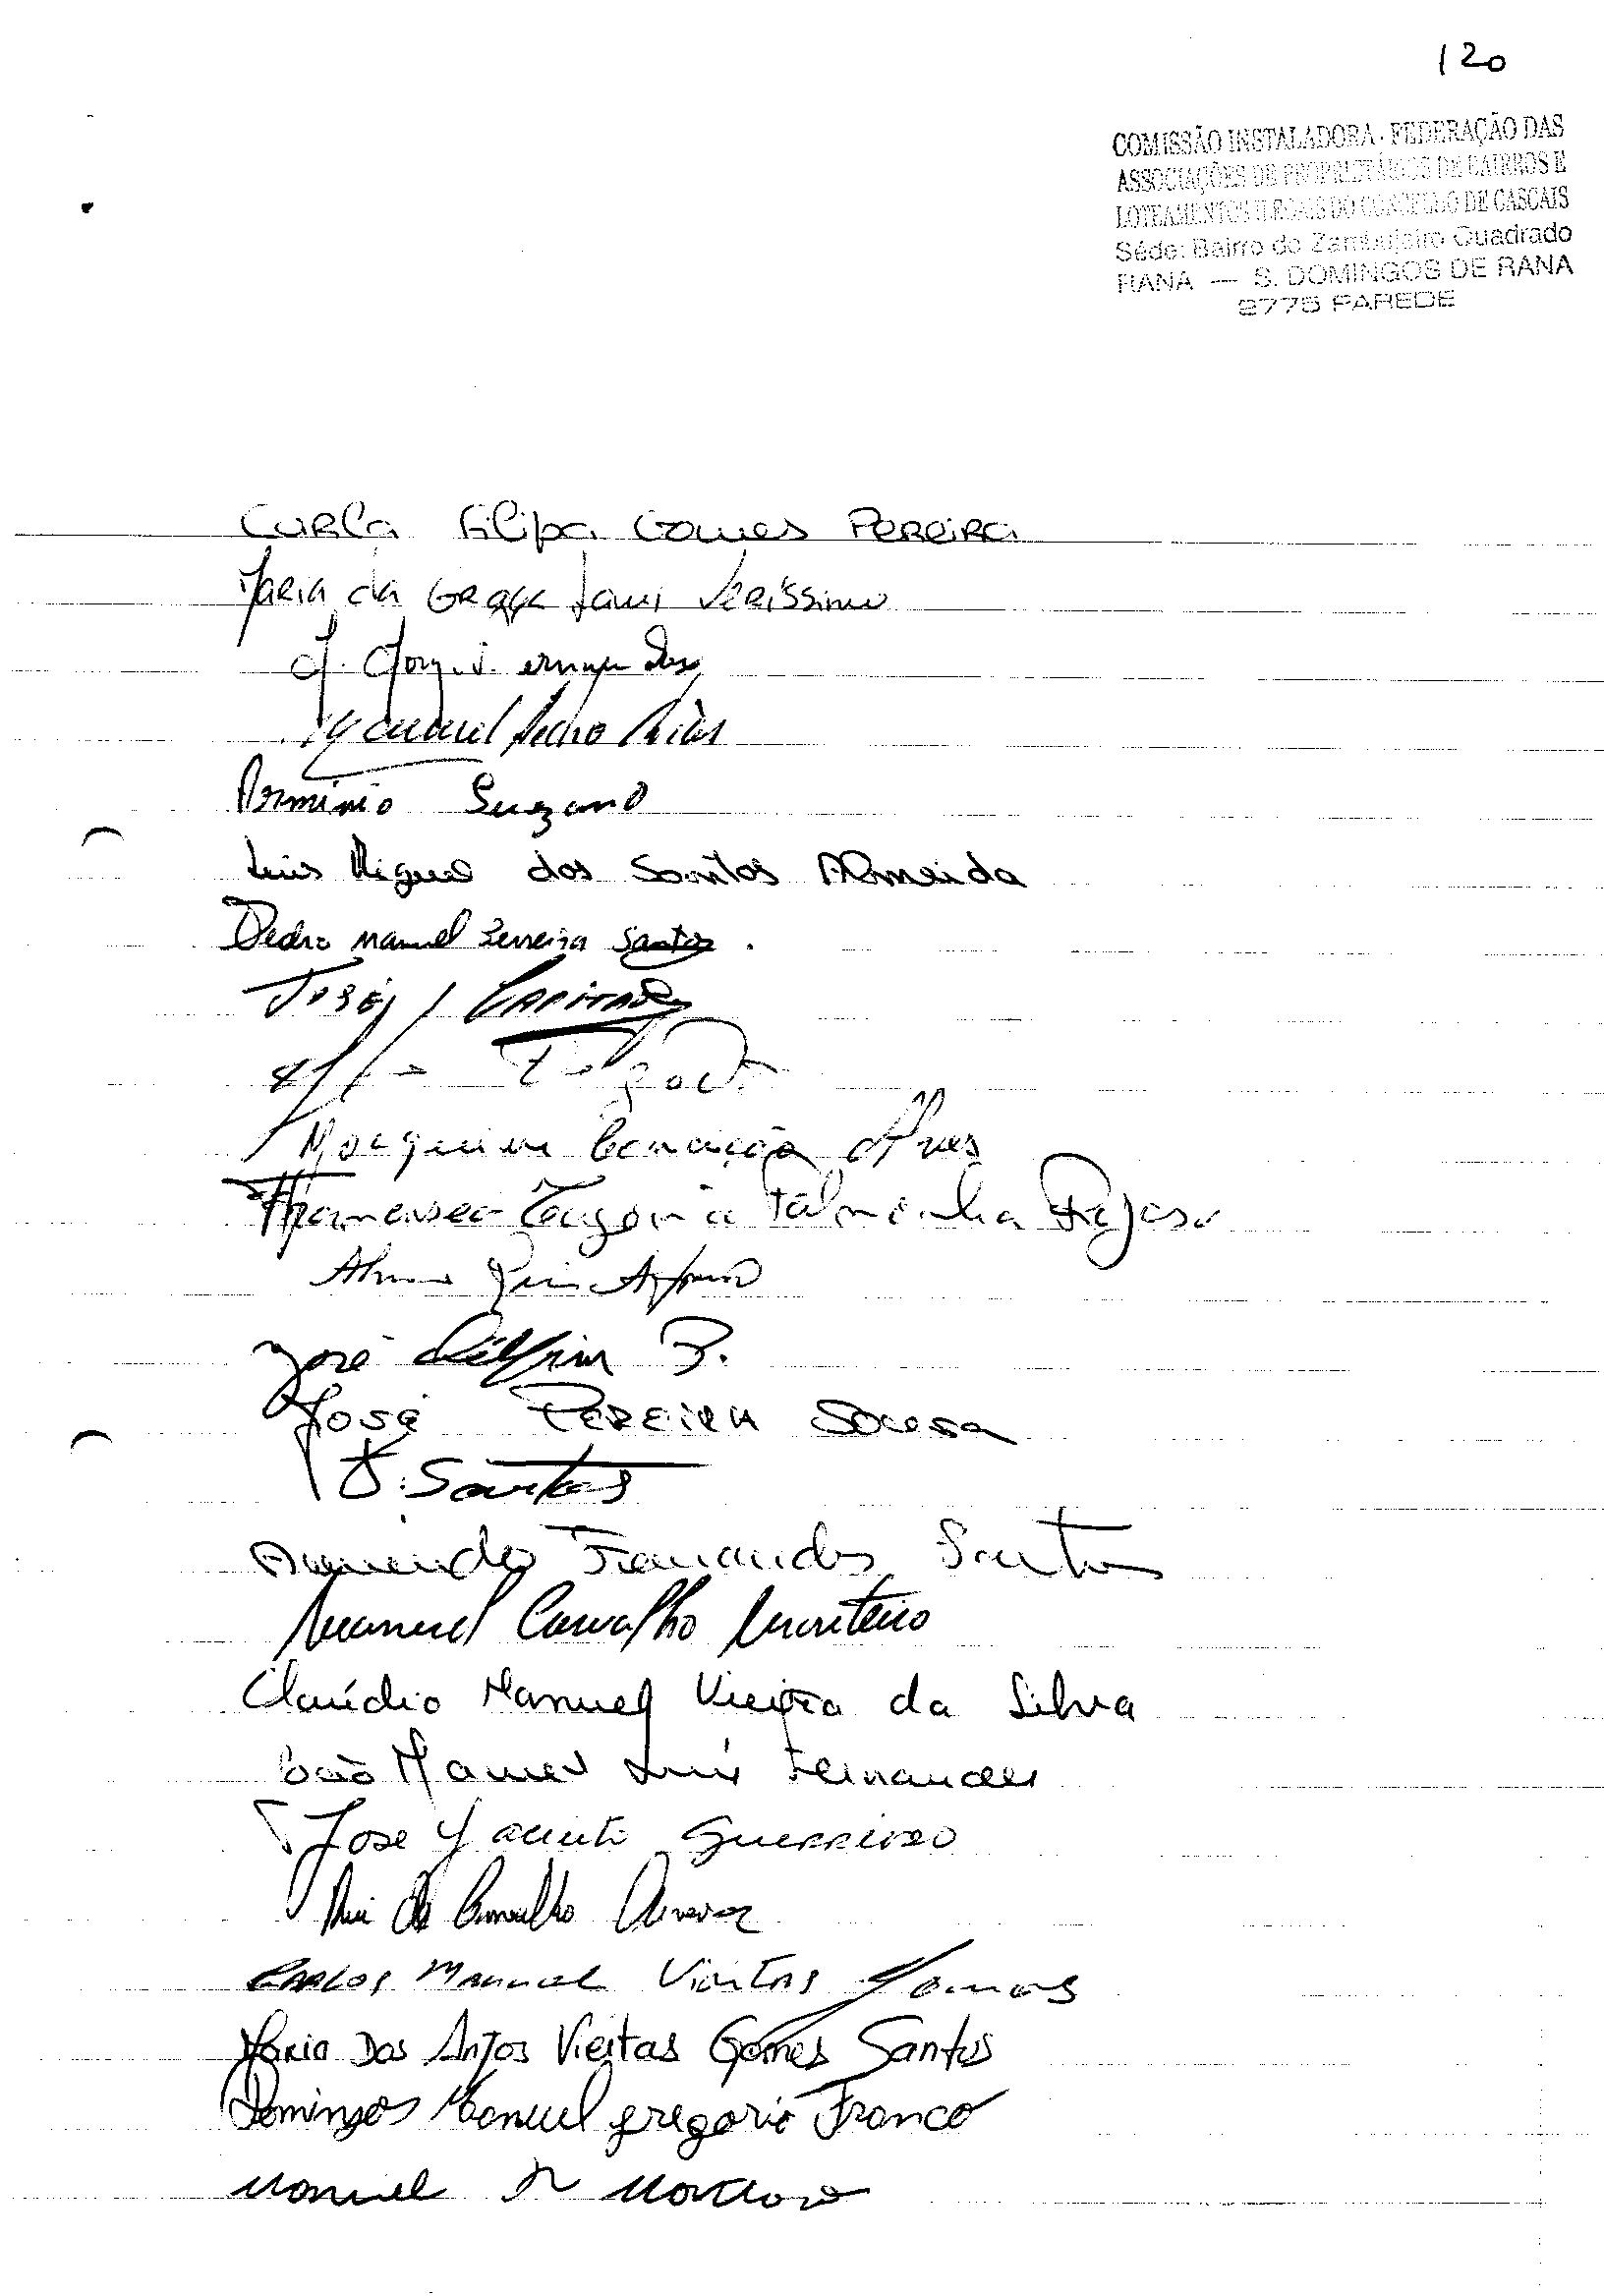 120
COMISSÃO INSTALADORA - FEDERAÇÃO DAS
ASSOCIAÇÕES DE PROPRIETÁRIOS DE BAIRROS E
LOTEAMENTOS ILEGAIS DO CONCELHO DE CASCAIS
Séde: Bairro do Zambujeiro Quadrado
RANA — S. DOMINGOS DE RANA
2775 PAREDE
Carla Filipa Gomes Pereira
Maria da Graça Veríssimo
J.
Manuel Pedro
Arminio Suzano
Luis Miguel dos Santos Almeida
Pedro Manuel Ferreira Santos.
José Capitão
Conceição Alves
Palminha
José Delfim P.
José Pereira Sousa
J. Santos
Armando Fernandes Santos
Manuel Carvalho Monteiro
Claúdio Manuel Vieira da Silva
João Manuel Luís Fernandes
Jose Jacinto Guerreiro
Rui de Carvalho
Carlos Manuel Vieitas Gomes
Maria Dos Anjos Vieitas Gomes Santos
Domingos Manuel gregorio Franco
Manuel